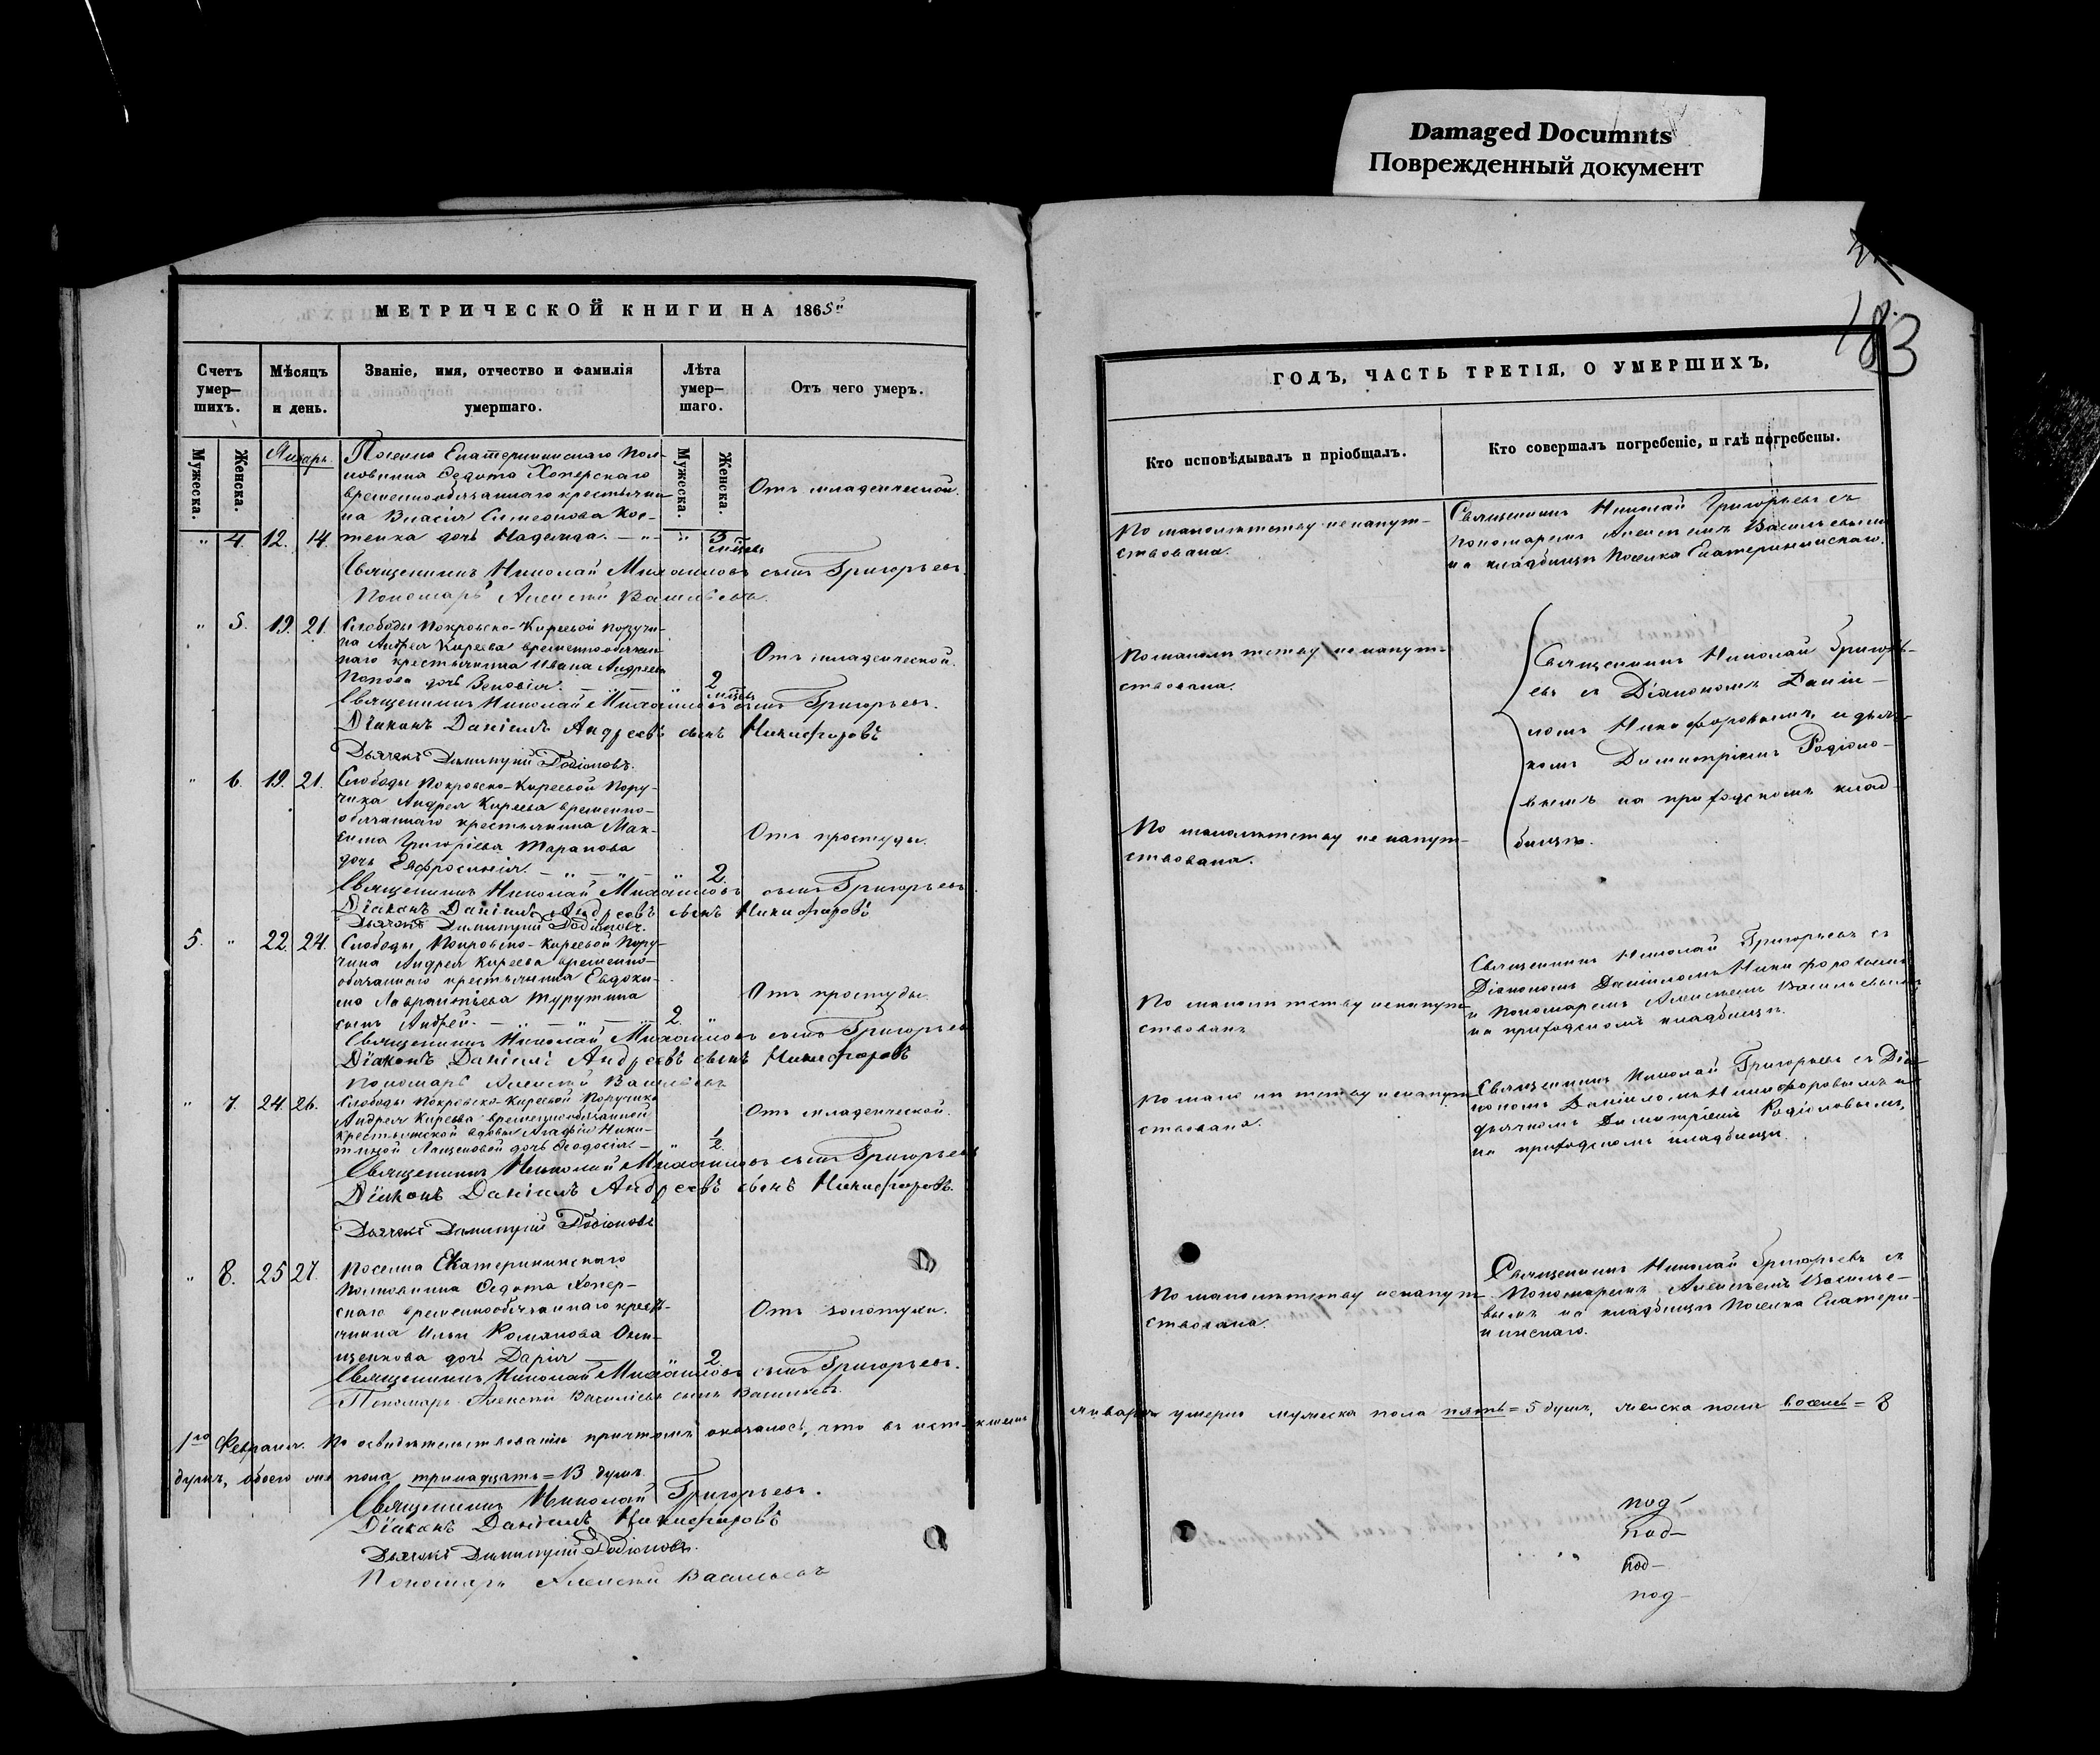 Damaged Documnts
Поврежденный документ
183
МЕТРИЧЕСКОЙ КНИГИ НА 1865
Счетъ умер–шихъ.
Мѣсяцъ и день.
Званіе, имя, отчество и фамилія умершаго.
Лѣта умер–шаго.
Отъ чего умеръ.
Мужеска.
Женска.
Январь.
Мужеска.
Женска.
Поселка Екатерининскаго Пол-
ковника Ѳедота Хоперскаго
временнообязаннаго крестьяни-
на Власія Симеонова Кос-
" 4. 12. 14. тенка дочь Надежда. — " — " 3 мѣсяц.
Отъ младенческой.
Священникъ Николай Михаиловъ сынъ Григорьевъ.
Пономарь Алексѣй Васильевъ.
" 5. 19. 21. Слободы Покровско-Киреевой поручи-
ка Андрея Киреева временнообязан-
наго крестьянина Ивана Андреева
Попова дочь Зеновія. — " — " 2 мѣсяц.
Отъ младенческой.
Священникъ Николай Михаиловъ сынъ Григорьевъ.
Діаконъ Даніилъ Андреевъ сынъ Никифоровъ
Дьячекъ Димитрій Родіоновъ.
" 6. 19. 21. Слободы Покровско-Киреевой Пору-
чика Андрея Киреева временно-
обязаннаго крестьянина Мак-
сима Григоріева Таранова
дочь Евфросинія. — " — " — " 2.
Отъ простуды.
Священникъ Николай Михаиловъ сынъ Григорьевъ
Діаконъ Даніилъ Андреевъ сынъ Никифоровъ
Дьячекъ Димитрій Родіоновъ.
5. " 22. 24. Слободы Покровско-Киреевой Пору-
чика Андрея Киреева временно-
обязаннаго крестьянина Евдоки-
ма Лаврентіева Турутина
сынъ Андрей. — " — " — " 2. "
Отъ простуды.
Священникъ Николай Михаиловъ сынъ Григорьев
Діаконъ Даніилъ Андреевъ сынъ Никифоровъ
Пономарь Алексѣй Васильевъ
" 7. 24. 26. Слободы Покровско-Киреевой Поручика
Андрея Киреева временнообязанной
крестьянской вдовы Агафіи Ники-
тиной дочь Ѳеодосія. — " 1/2.
Отъ младенческой.
Священникъ Николай Михаиловъ сынъ Григорьевъ
Діаконъ Даніилъ Андреевъ сынъ Никифоровъ.
Дьячекъ Димитрій Родіоновъ
" 8. 25 27. Поселка Екатерининскаго
Полковника Ѳедота Хопер-
скаго временнообязаннаго кресть-
янина Ильи Романова Они-
щенкова дочь Дарія — " 2.
Отъ золотухи.
Священникъ Николай Михаиловъ сынъ Григорьевъ.
Пономарь Алексѣй Васильевъ сынъ Васильевъ.
1го Февраля. По освидѣтельствованію причтомъ оказалось, что въ истекшемъ
январѣ умерло мужеска пола пять = 5 душъ, женска пола восемь = 8
душъ, обоего же пола тринадцать = 13 душъ.
Священникъ Николай Григорьевъ.
Діаконъ Даніилъ Никифоровъ
Дьячекъ Димитрій Родіоновъ.
Пономарь Алексѣй Васильевъ
ГОДЪ, ЧАСТЬ ТРЕТІЯ, О УМЕРШИХЪ,
Кто исповѣдывалъ и пріобщалъ.
Кто совершалъ погребеніе, и гдѣ погребены.
По малолѣтству не напут-
ствована.
Священникъ Николай Григорьевъ съ
Пономаремъ Алексѣемъ Васильевымъ
на кладбищѣ Поселка Екатерининскаго.
По малолѣтству не напут-
ствована.
Священникъ Николай Григорь-
евъ съ Діакономъ Даніи-
ломъ Никифоровымъ и дьяч-
комъ Димитріемъ Родіоно-
вымъ на приходскомъ клад-
бищѣ.
По малолѣтству не напут-
ствована.
По малолѣтству не напут-
ствованъ
Священникъ Николай Григорьевъ съ
Діакономъ Даніиломъ Никифоровымъ
и Пономаремъ Алексѣемъ Васильевымъ
на приходскомъ кладбищѣ.
По малолѣтству не напут-
ствована.
Священникъ Николай Григорьевъ съ Діа-
кономъ Даніиломъ Никифоровымъ и
дьячкомъ Димитріемъ Родіоновымъ,
на приходскомъ кладбищѣ.
По малолѣтству не напут-
ствована.
Священникъ Николай Григорьевъ съ
Пономаремъ Алексѣемъ Василье-
вымъ на кладбищѣ Поселка Екатери-
нинскаго.
под-
под-
под-
под-